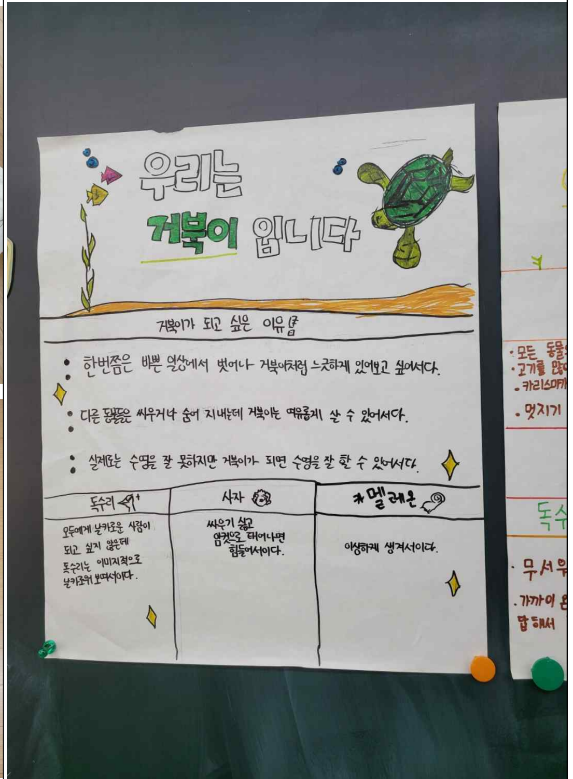 우리는
거북이 입니다
거북이가 되고 싶은 이유
한번쯤은 바쁜 일상에서 벗어나 거북이처럼 느긋하게 있어보고 싶어서다.
다른 동물들은 싸우거나 숨어 지내는데 거북이는 여유롭게 살 수 있어서다.
실제로는 수영을 잘 못하지만 거북이가 되면 수영을 잘 할 수 있어서다.
독수리
모두에게 날카로운 사람이
되고 싶지 않은데
독수리는 이미지적으로
날카로워 보여서이다.
사자
싸우기 싫고
암컷으로 태어나면
힘들어서이다.
카멜레온
이상하게 생겨서이다.
· 모든 동물
· 고기를 많이
· 카리스마
· 멋지기
독수
· 무서워
· 가까이
해서